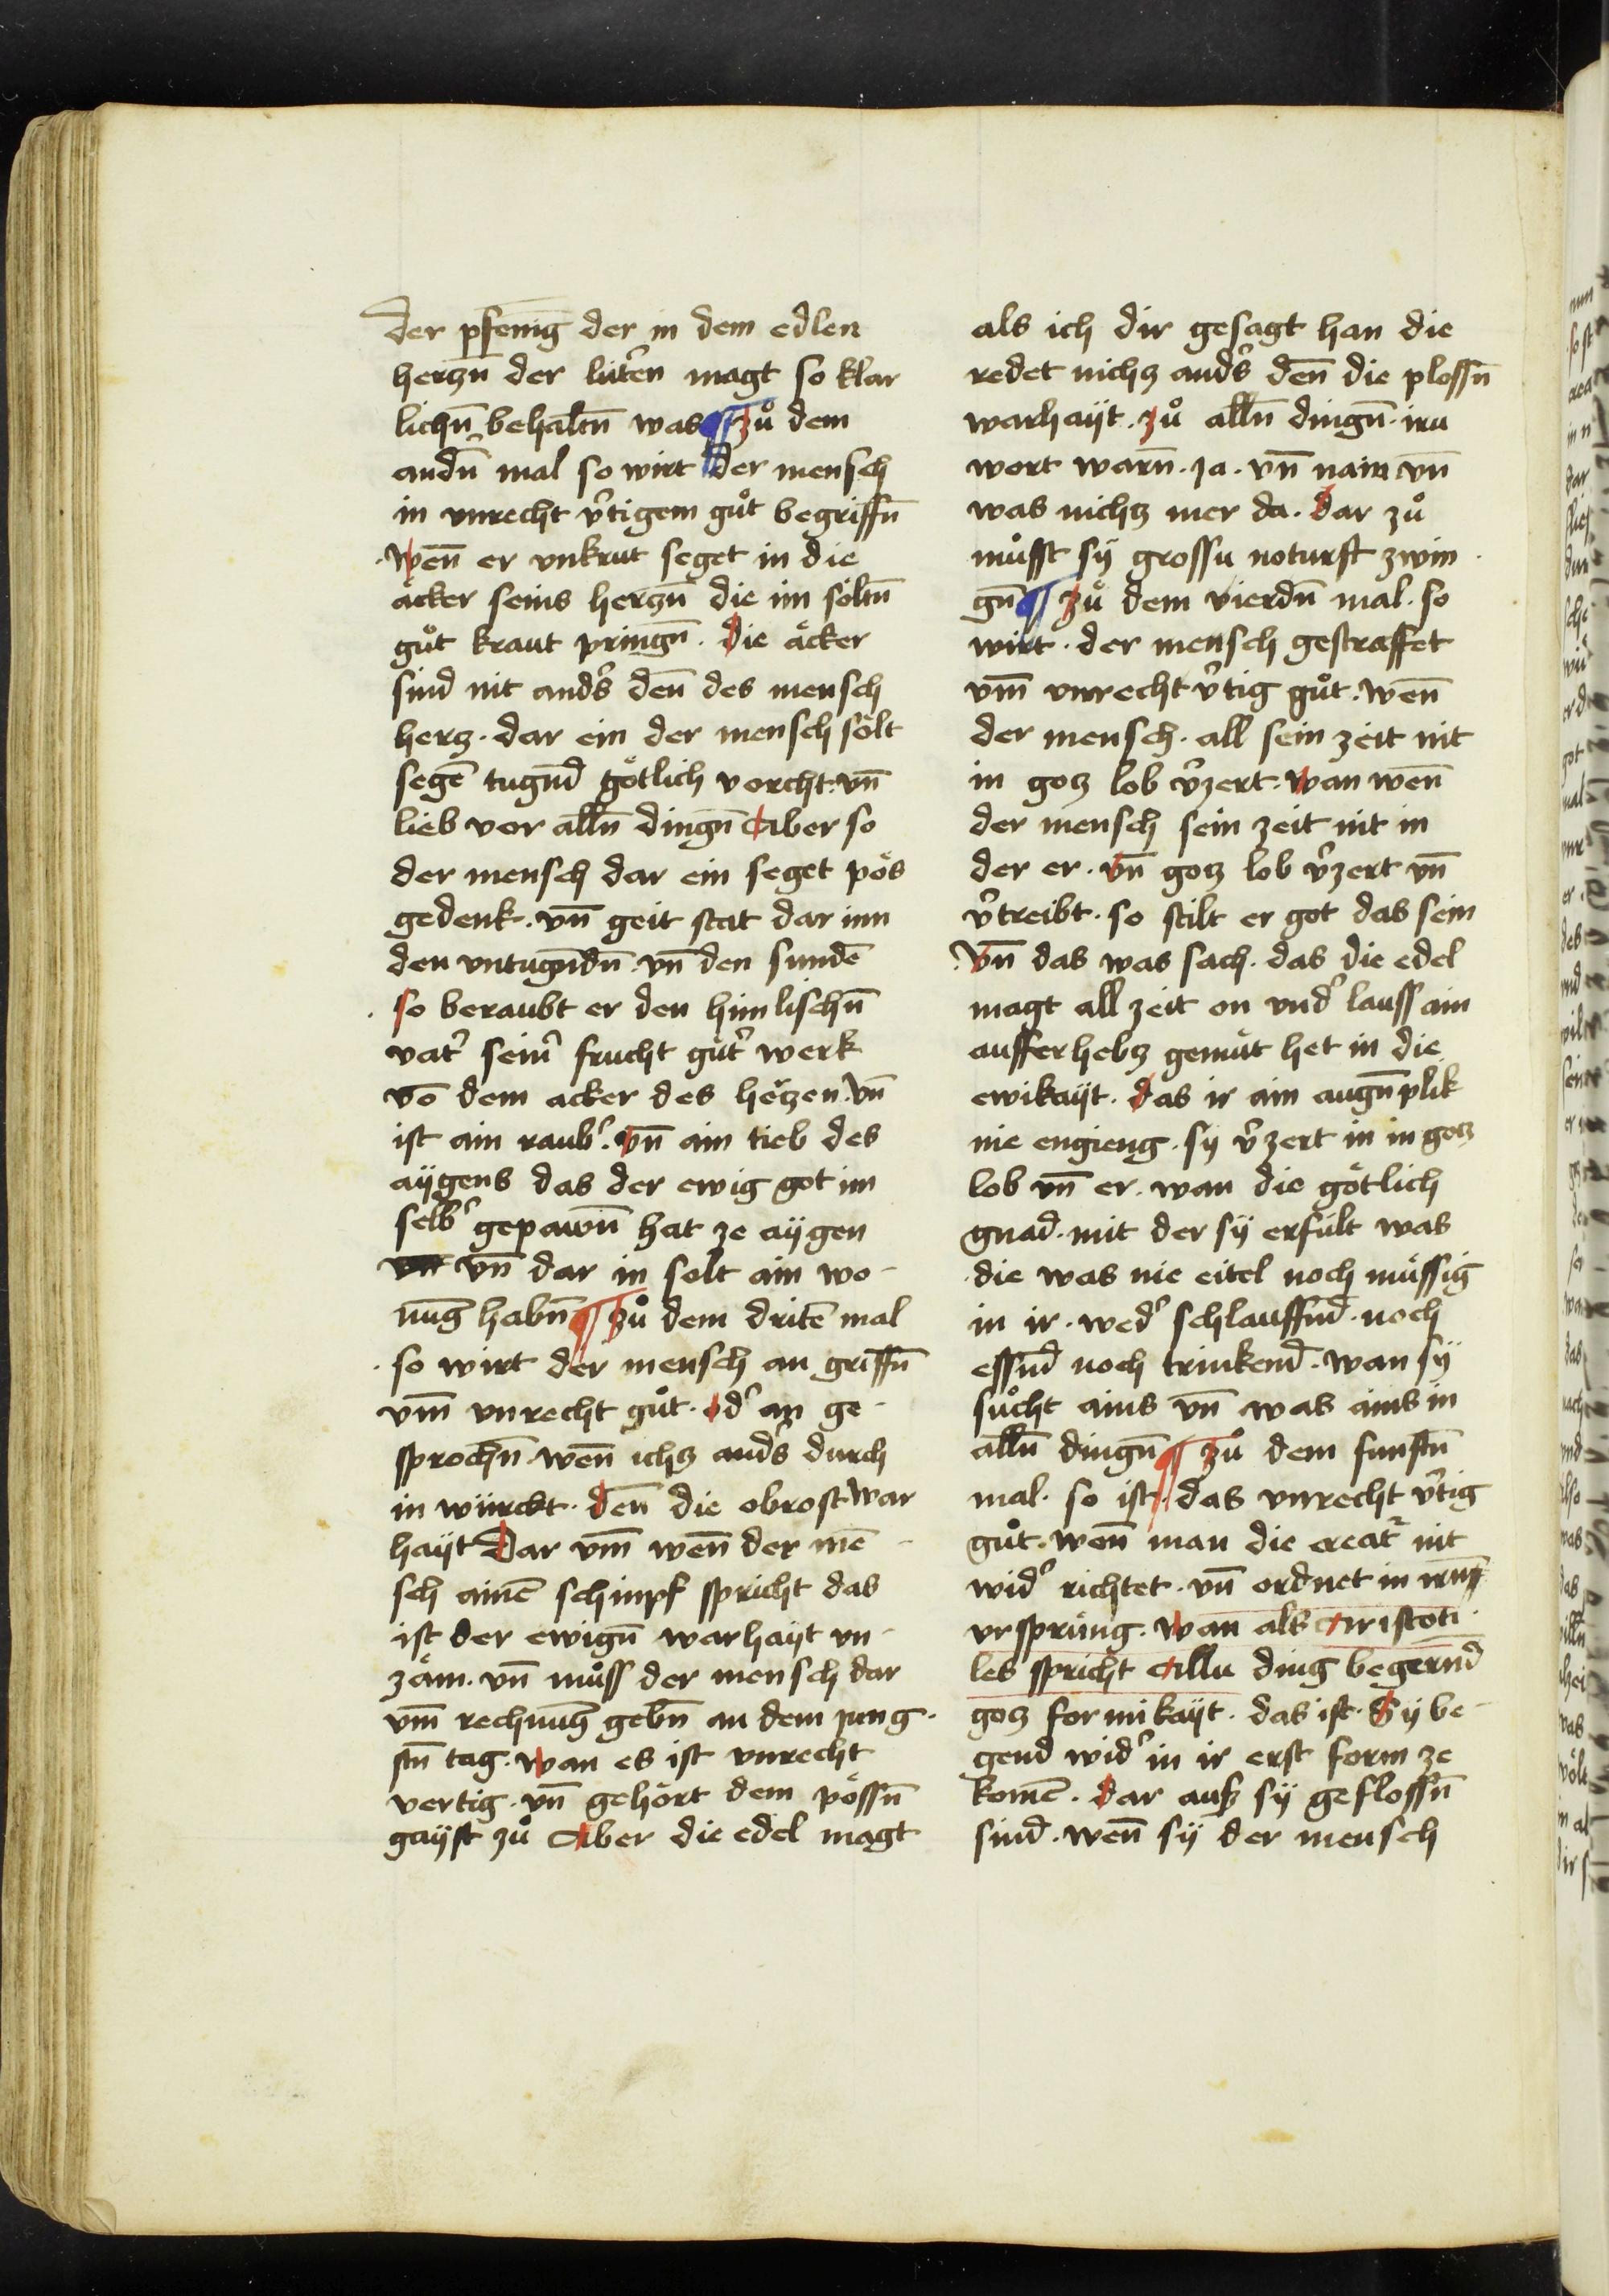 der pfenīg der in dem edlen
herczn̄ der lut̓en magt so klar
lichn̄ behaltn̄ was ¶ zů dem
andn̄ mal so wirt der mensch
in vnrecht v̓tigem gůt begriffn̄
wen̄ er vnkrut seget in die
äcker seins herczn̄ die im söltn̄
gůt kraut pringn̄ . die äcker
sind nit and̓s den̄ des mensch
hercz . dar ein der mensch sölt
segē tugn̄d götlich vorcht . vn̄
lieb vor alln̄ dingn̄ Aber so
der mensch dar ein seget pös
gedenk . vn̄ geit stat dar inn
den vntugn̄dn̄ . vn̄ den sundē
. so beraubt er den himlischn̄
vat̓ sein̓ frucht gůt̓ werk
vō dem acker des he̓czen . vn̄
ist ain raub̓ . vn̄ ain tieb des
aÿgens das der ewig got im
selb̓ gepawn̄ hat ze aÿgen
vn̄ dar in solt ain wo-
nūg habn̄ ¶ zů dem dritē mal
. so wirt der mensch an griffn̄
vm̄ vnrecht gůt . od̓ an ge-
sprochn̄ . wen̄ ichcz and̓s durch
in würckt . den̄ die obrost war
haÿt Dar vm̄ wen̄ der mē-
sch ainē schimpf spricht das
ist der ewign̄ warhaÿt vn-
zäm . vn̄ můss der mensch dar
vm̄ rechnūg gebn̄ an dem jung-
stn̄ tag . wan es ist vnrecht
vertig . vn̄ gehört dem pössn̄
gaÿst zů Aber die edel magt
als ich dir gesagt han die
redet nichcz and̓s den̄ die plossn̄
warhaÿt . zů alln̄ dingn̄ . iru
wort warn̄ . ja . vn̄ nain vn̄
was nichcz mer da . dar zů
můsst sÿ grossu noturft zwin-
gn̄ ¶ zů dem vierdn̄ mal . so
wirt . der mensch gestraffet
vm̄ vnrecht v̓tig gůt . wen̄
der mensch . all sein zeit nit
in gocz lob v̓zert . wan wen̄
der mensch sein zeit nit in
der er . vn̄ gocz lob v̓zert vn̄
v̓treibt . so stilt er got das sein
. vn̄ das was sach . das die edel
magt all zeit on vnd̓ lauss ain
aufferhebcz gemüt het in die
ewikaÿt . das ir ain augn̄plik
nie engieng . sÿ v̓zert in in gocz
lob vn̄ er . wan die götlich
gnad . mit der sÿ erfült was
die was nie eitel noch müssig
in ir . wed̓ schlauffn̄d . noch
essn̄d noch trinkend . wan sÿ
sůcht ains vn̄ was ains in
alln̄ dingn̄ ¶ zů dem funftn̄
mal . so ist . das vnrecht v̓tig
gůt . wen̄ man die creat̓ nit
wid̓ richtet . vn̄ ordnet in irn̄
vrsprüng . wan als Aristoti-
les spricht Allu ding begern̄d
gocz formikaÿt . das ist . Sÿ be-
gend wid̓ in ir erst form ze
komē . dar auß sÿ geflossn̄
sind . wen̄ sÿ der mensch